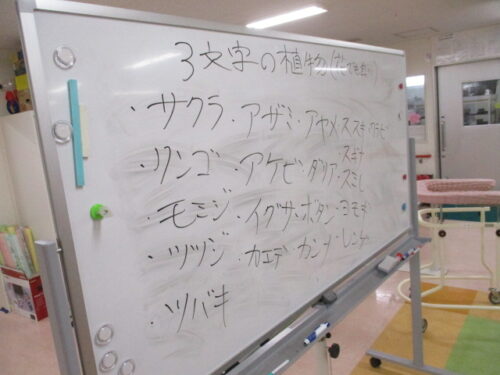 3文字の植物
・サクラ ・アザミ ・アヤメ ススキ ・ワラビ
スギナ
・リンゴ ・アケビ ・ダリア ・スミレ
・モミジ ・イグサ ・ボタン ・ヨモギ
・ツツジ ・カエデ ・カンナ ・レンゲ
・ツバキ